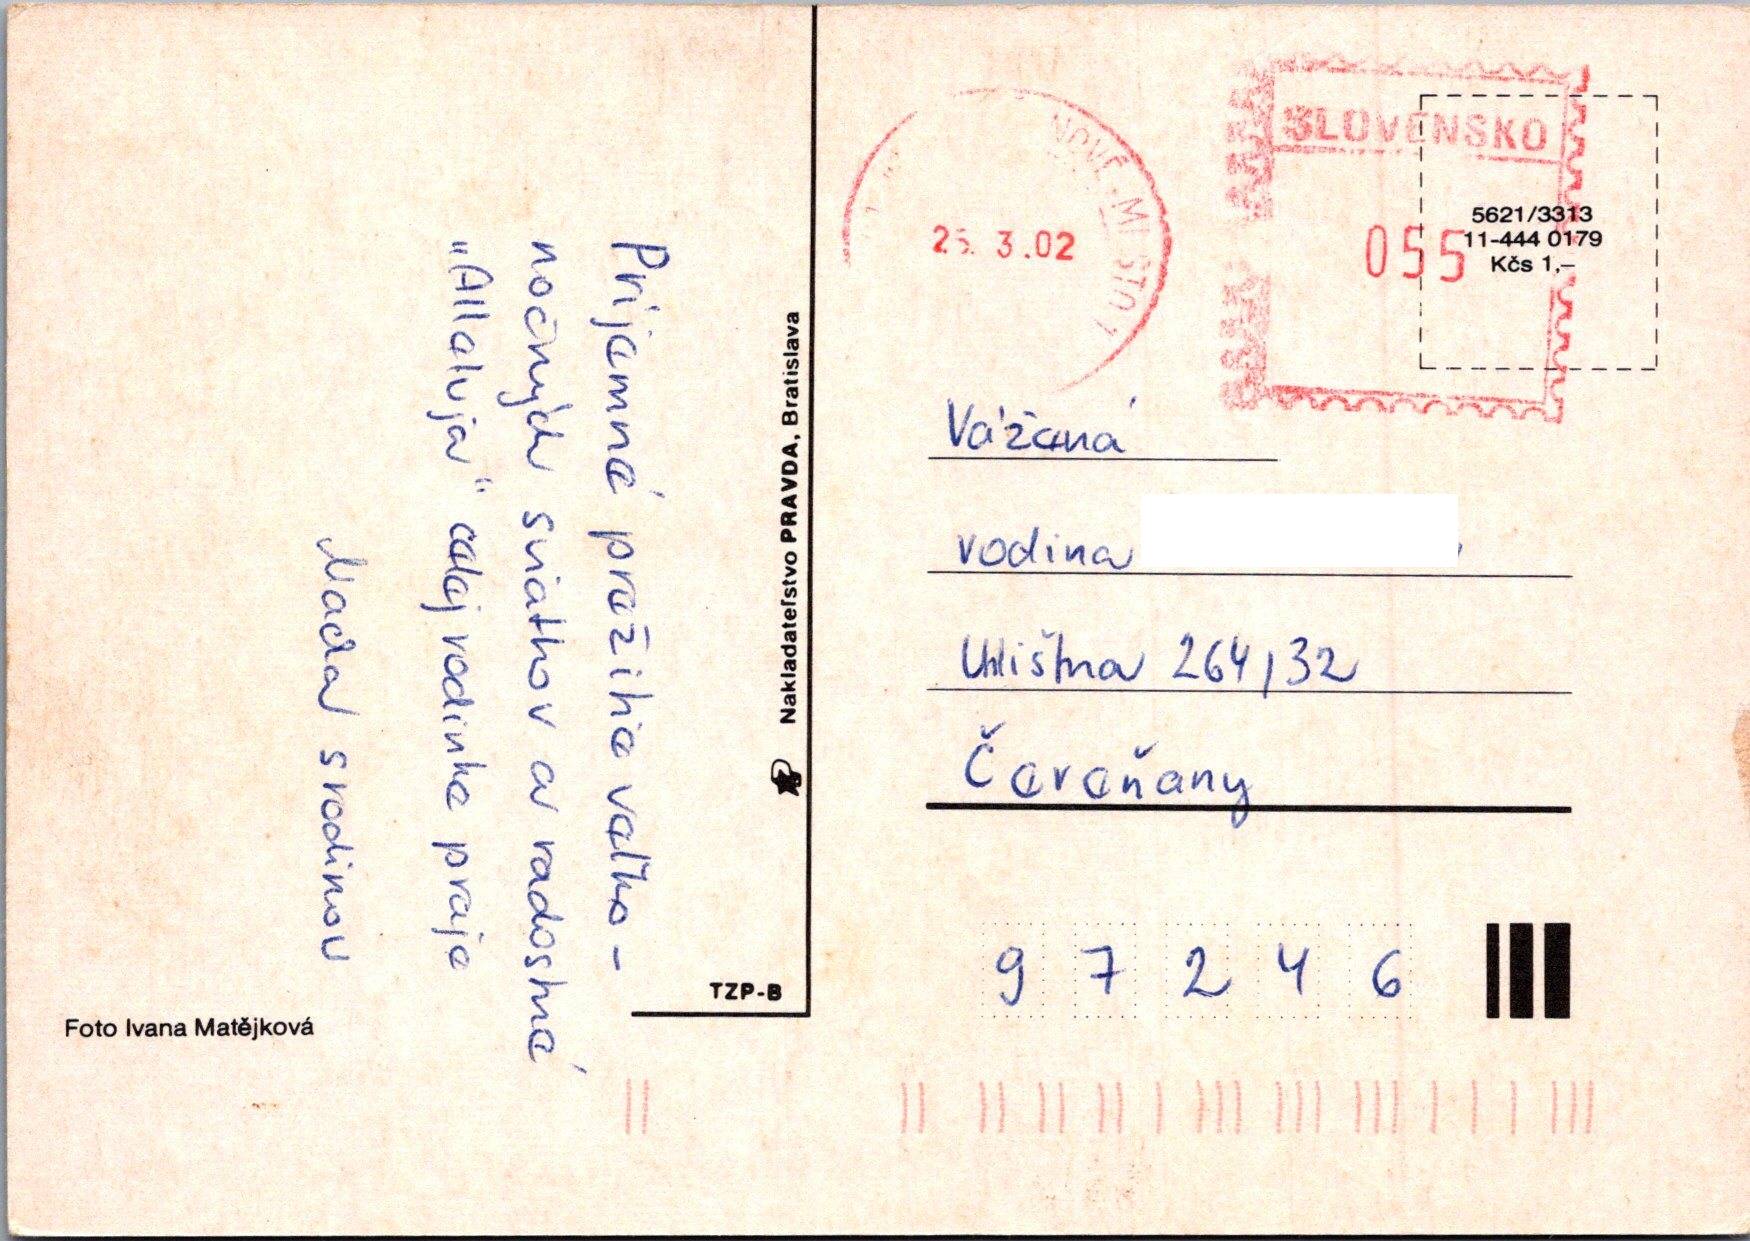 Príjemné prežitie veľko-
nočných sviatkov a radostné
„Alleluja“ celej rodinke praje
Naďa s rodinou
Foto Ivana Matějková
Nakladateľstvo PRAVDA, Bratislava
TZP-B
NOVÉ MESTO
3.02
SLOVENSKO
055
5621/3313
11-444 0179
Kčs 1,–
Vážená
rodina
Uhlištna 264/32
Čereňany
97246